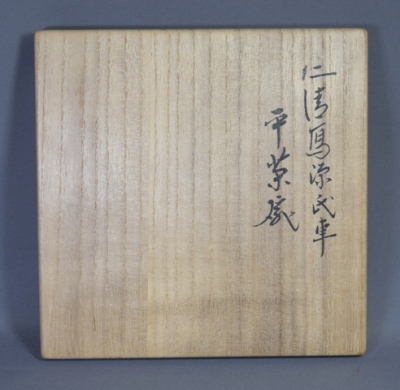 仁清写源氏車
平茶盌